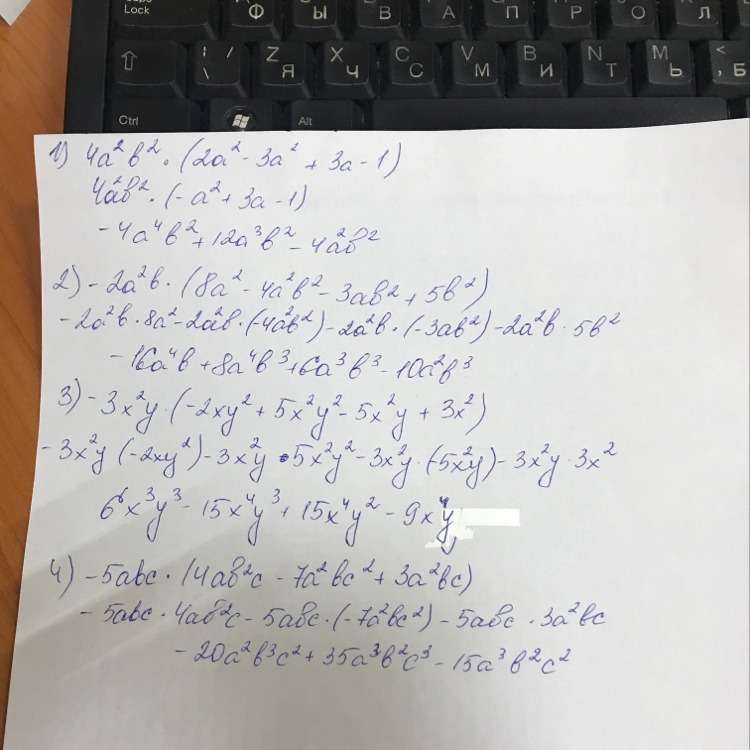 Lock Ф Ы В А П Р О Л
⇧ | \ / Z Я X Ч C С V М B И N Т M Ь < , Б
Ctrl Alt
1) 4a²b² · (2a² - 3a² + 3a - 1)
4a²b² · (-a² + 3a - 1)
- 4a⁴b² + 12a³b² - 4a²b²
2) - 2a²b · (8a² - 4a²b² - 3ab² + 5b²)
- 2a²b · 8a² - 2a²b · (-4a²b²) - 2a²b · (-3ab²) - 2a²b · 5b²
- 16a⁴b + 8a⁴b³ + 6a³b³ - 10a²b³
3) - 3x²y · (-2xy² + 5x²y² - 5x²y + 3x²)
- 3x²y (-2xy²) - 3x²y · 5x²y² - 3x²y · (-5x²y) - 3x²y · 3x²
6x³y³ - 15x⁴y³ + 15x⁴y² - 9x⁴y
4) - 5abc · (4ab²c - 7a²bc² + 3a²bc)
- 5abc · 4ab²c - 5abc · (-7a²bc²) - 5abc · 3a²bc
- 20a²b³c² + 35a³b²c³ - 15a³b²c²